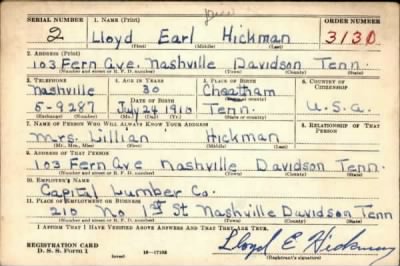 SERIAL NUMBER 1. NAME (Print) ORDER NUMBER
2 Lloyd Earl Hickman 3130
(First) (Middle) (Last)
2. ADDRESS (Print)
103 Fern Ave. Nashville Davidson Tenn.
(Number and street or R. F. D. number) (Town) (County) (State)
3. TELEPHONE 4. AGE IN YEARS 5. PLACE OF BIRTH 6. COUNTRY OF CITIZENSHIP
Nashville 30 Cheatham
(Town or county)
5-9287 July 24 1910 Tenn. U.S.a.
(Exchange) (Number) (Mo.) (Day) (Yr.) (State or country)
7. NAME OF PERSON WHO WILL ALWAYS KNOW YOUR ADDRESS 8. RELATIONSHIP OF THAT PERSON
Mrs. Lillian Hickman
(Mr., Mrs., Miss) (First) (Middle) (Last)
9. ADDRESS OF THAT PERSON
103 Fern Ave Nashville Davidson Tenn
(Number and street or R. F. D. number) (Town) (County) (State)
10. EMPLOYER'S NAME
Capital Lumber Co.
11. PLACE OF EMPLOYMENT OR BUSINESS
210 No 1st St Nashville Davidson Tenn
(Number and street or R. F. D. number) (Town) (County) (State)
I AFFIRM THAT I HAVE VERIFIED ABOVE ANSWERS AND THAT THEY ARE TRUE.
REGISTRATION CARD
D. S. S. Form 1 Lloyd E Hickman
(Registrant's signature)